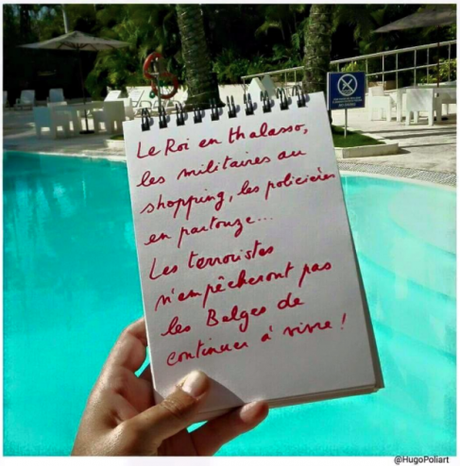 Le Roi en thalasso,
les militaires au
shopping, les policières
en partouze...
Les terroristes
n'empêcheront pas
les Belges de
continuer à vivre !
@HugoPoliart